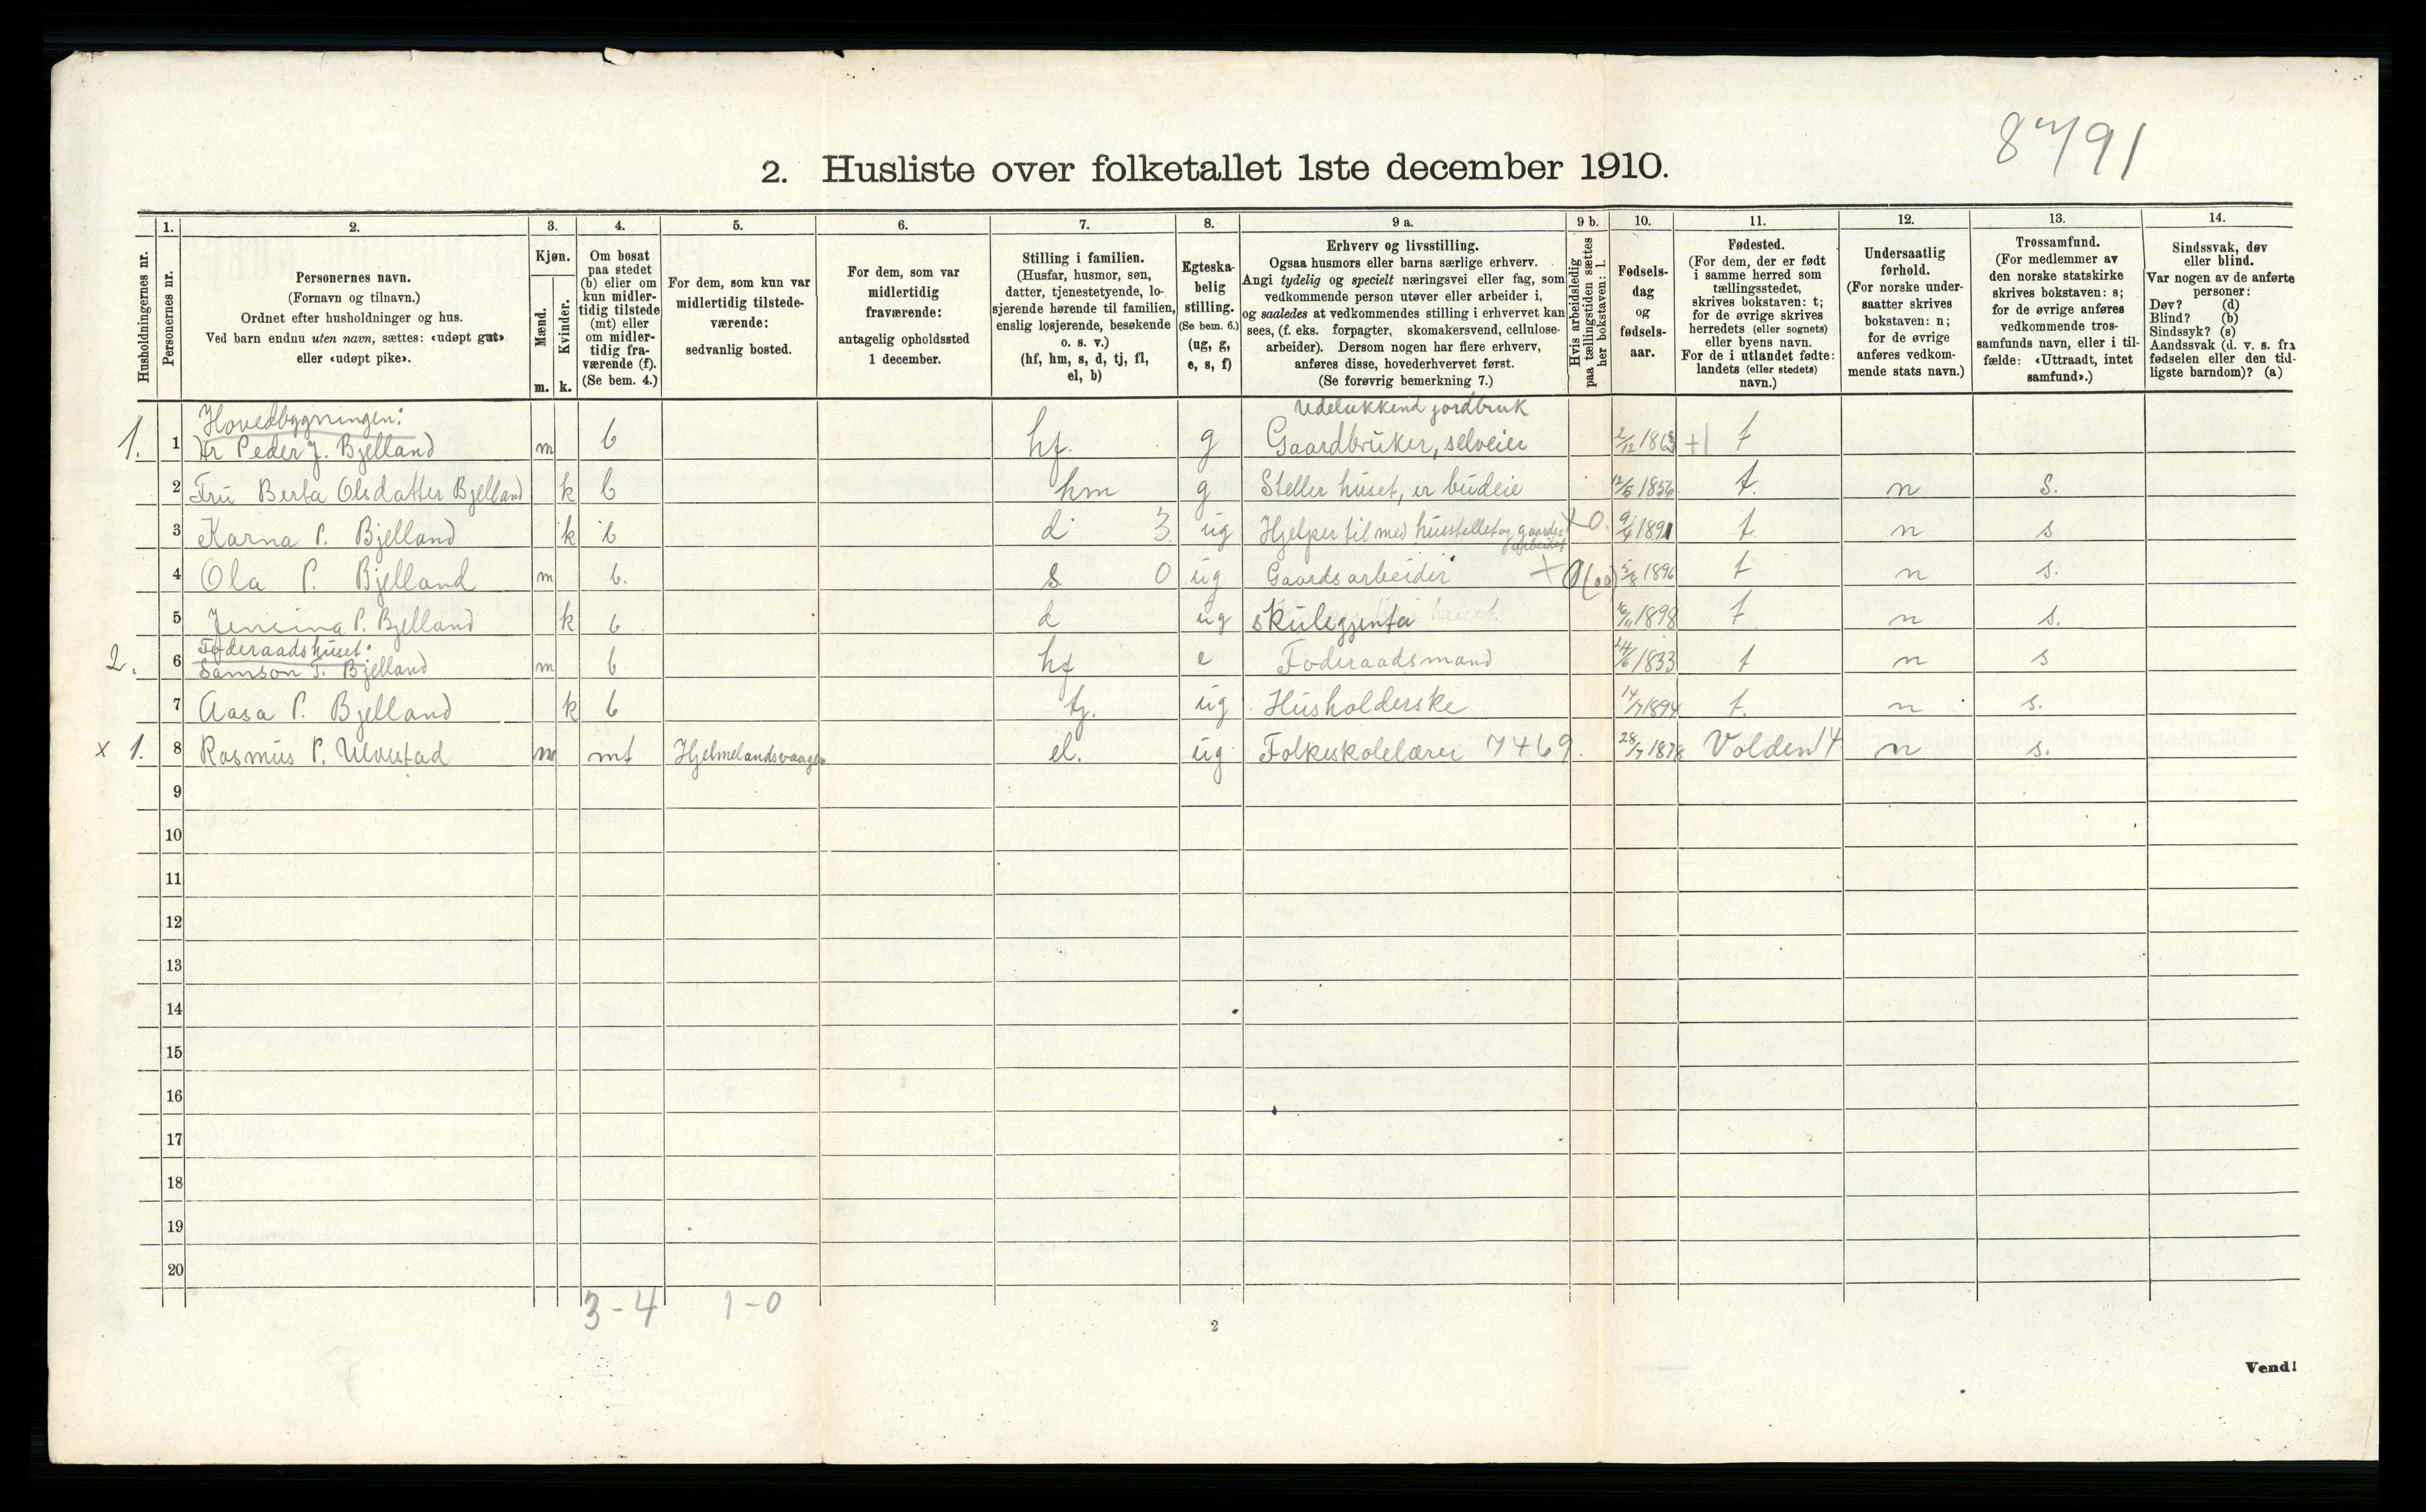 8 91
2. Husliste over folketallet 1ste december 1910.
1. 2. 3. 4. 5. 6. 7. 8. 9 a. 9 b. 10. 11. 12. 13. 14.
Husholdningernes nr.
Personernes nr.
Personernes navn.
(Fornavn og tilnavn.)
Ordnet efter husholdninger og hus.
Ved barn endnu uten navn, sættes: «udøpt gut»
eller «udøpt pike».
Kjøn.
Mænd.
m.
Kvinder.
k.
Om bosat
paa stedet
(b) eller om
kun midler-
tidig tilstede
(mt) eller
om midler-
tidig fra-
værende (f).
(Se bem. 4.)
For dem, som kun var
midlertidig tilstede-
værende:
sedvanlig bosted.
For dem, som var
midlertidig
fraværende:
antagelig opholdssted
1 december.
Stilling i familien.
(Husfar, husmor, søn,
datter, tjenestetyende, lo-
sjerende hørende til familien,
enslig losjerende, besøkende
o. s. v.)
(hf, hm, s, d, tj, fl,
el, b)
Egteska-
belig
stilling.
(Se bem. 6.)
(ug, g,
e, s, f)
Erhverv og livsstilling.
Ogsaa husmors eller barns særlige erhverv.
Angi tydelig og specielt næringsvei eller fag, som
vedkommende person utøver eller arbeider i,
og saaledes at vedkommendes stilling i erhvervet kan
sees, (f. eks. forpagter, skomakersvend, cellulose-
arbeider). Dersom nogen har flere erhverv,
anføres disse, hovederhvervet først.
(Se forøvrig bemerkning 7.)
Hvis arbeidsledig
paa tællingstiden sættes
her bokstaven: l.
Fødsels-
dag
og
fødsels-
aar.
Fødested.
(For dem, der er født
i samme herred som
tællingsstedet,
skrives bokstaven: t;
for de øvrige skrives
herredets (eller sognets)
eller byens navn.
For de i utlandet fødte:
landets (eller stedets)
navn.)
Undersaatlig
forhold.
(For norske under-
saatter skrives
bokstaven: n;
for de øvrige
anføres vedkom-
mende stats navn.)
Trossamfund.
(For medlemmer av
den norske statskirke
skrives bokstaven: s;
for de øvrige anføres
vedkommende tros-
samfunds navn, eller i til-
fælde: «Uttraadt, intet
samfund».)
Sindssvak, døv
eller blind.
Var nogen av de anførte
personer:
Døv? (d)
Blind? (b)
Sindssyk? (s)
Aandssvak (d. v. s. fra
fødselen eller den tid-
ligste barndom)? (a)
Hovedbygningen: Udelukkend jordbruk
1. 1 Hr Peder J. Bjelland m b hf. g Gaardbruker, selveier 2/12 1863 +1 t
2 Fru Berta Olsdatter Bjelland k b hm g Steller huset, er budeie 12/5 1856 t. n s.
3 Karna P. Bjelland k b d 3 ug Hjelper til med husstellet og gaards-
arbeidet + 0. 9/4 1891 t. n s
4 Ola P. Bjelland m b. s. 0 ug Gaardsarbeider + 0 5/8 1896 t n s.
5 Jensina P. Bjelland k b d ug skulegjenta 1898 t n s.
Føderaadshuset:
2. 6 Samson T. Bjelland m b hf e Føderaadsmand 24/6 1833 t n s
7 Aasa P. Bjelland k b tj. ug Husholderske 14/7 1894 t. n s.
x 1. 8 Rasmus P. Ulvestad m mt Hjelmelandsvaagen el. ug Folkeskolelærer 7469. 28/7 1878 Volden 14 n s.
9
10
11
12
13
14
15
16
17
18
19
20
3 - 4 1 - 0
2
Vend!